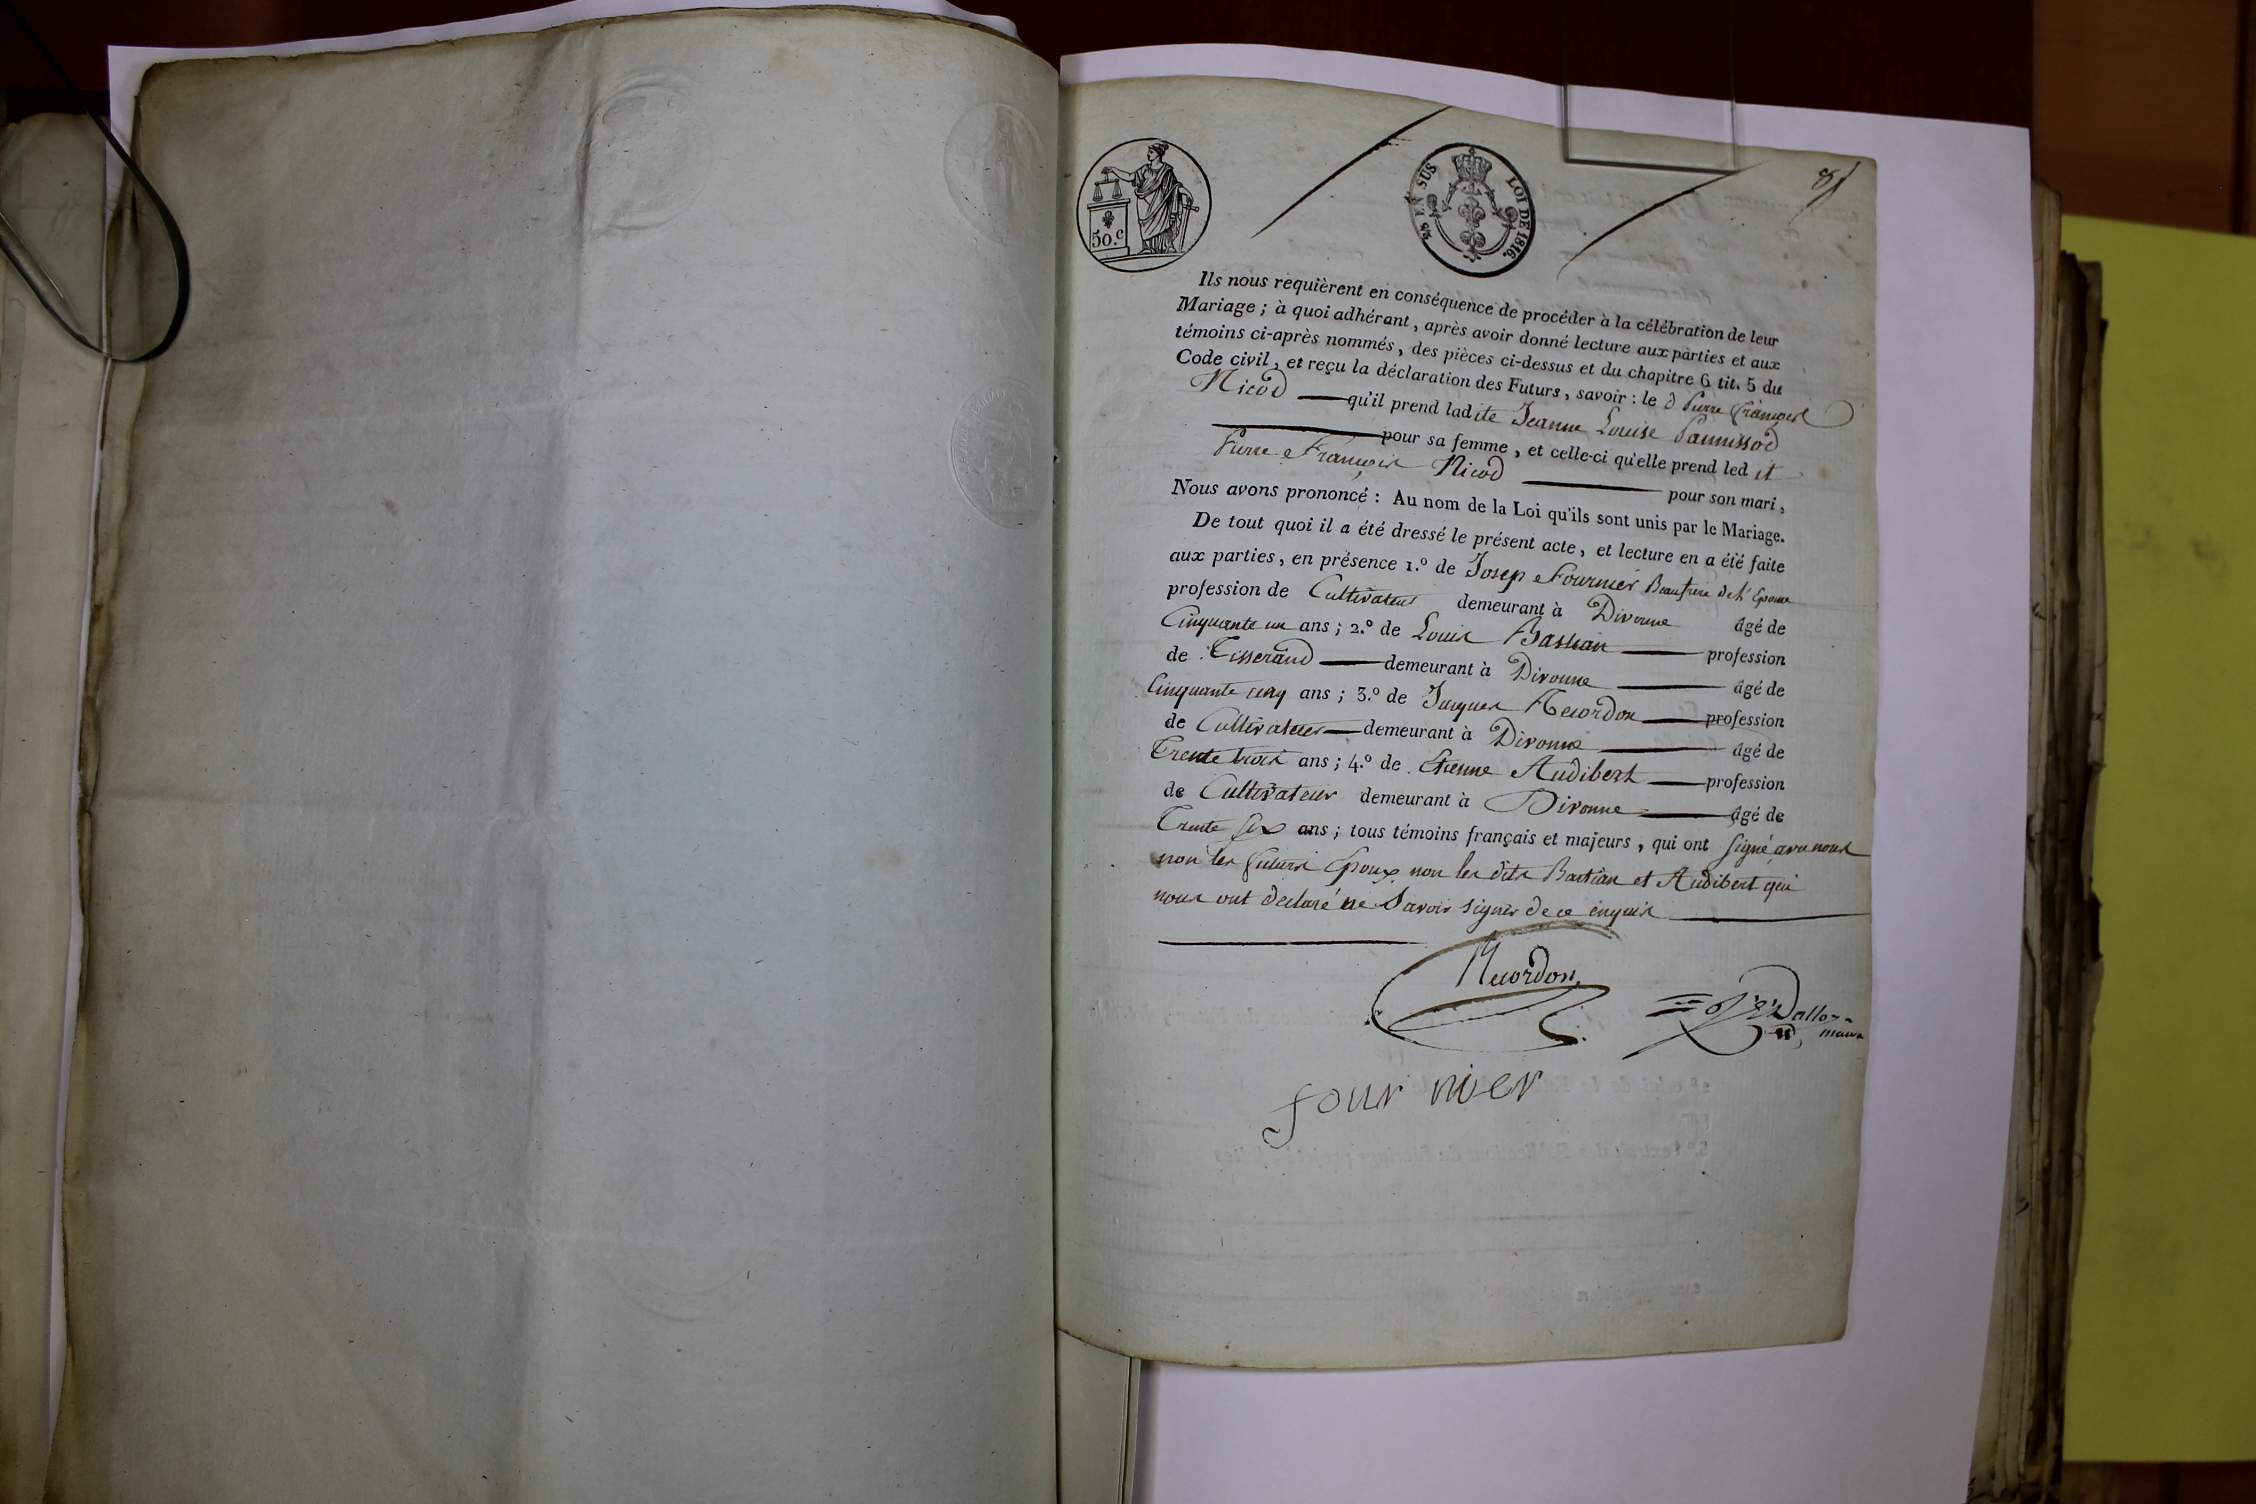 8
50.c
EN SUS
LOI DE 1816.
Ils nous requièrent en conséquence de procéder à la célébration de leur
Mariage ; à quoi adhérant, après avoir donné lecture aux parties et aux
témoins ci-après nommés, des pièces ci-dessus et du chapitre 6 tit. 5 du
Code civil, et reçu la déclaration des Futurs, savoir : le d Pierre François
Nicod qu'il prend ladite Jeanne Louise Pannissod
pour sa femme, et celle-ci qu'elle prend led it
Pierre François Nicod pour son mari,
Nous avons prononcé : Au nom de la Loi qu'ils sont unis par le Mariage.
De tout quoi il a été dressé le présent acte, et lecture en a été faite
aux parties, en présence 1.° de Josep Fournier Beaufrere de l'Epouse
profession de Cultivateur demeurant à Divonne âgé de
Cinquante un ans ; 2.° de Louis Bastian profession
de Tisserand demeurant à Divonne âgé de
Cinquante cinq ans ; 3.° de Jacques Recordon profession
de Cultivateur demeurant à Divonne âgé de
Trente trois ans ; 4.° de Etienne Audibert profession
de Cultivateur demeurant à Divonne âgé de
Trente Six ans ; tous témoins français et majeurs, qui ont Signé avec nous
non les futurs Epoux non les dits Bastian et Audibert qui
nous ont declaré ne Savoir signer de ce enquis
Recordon
maire
fournier